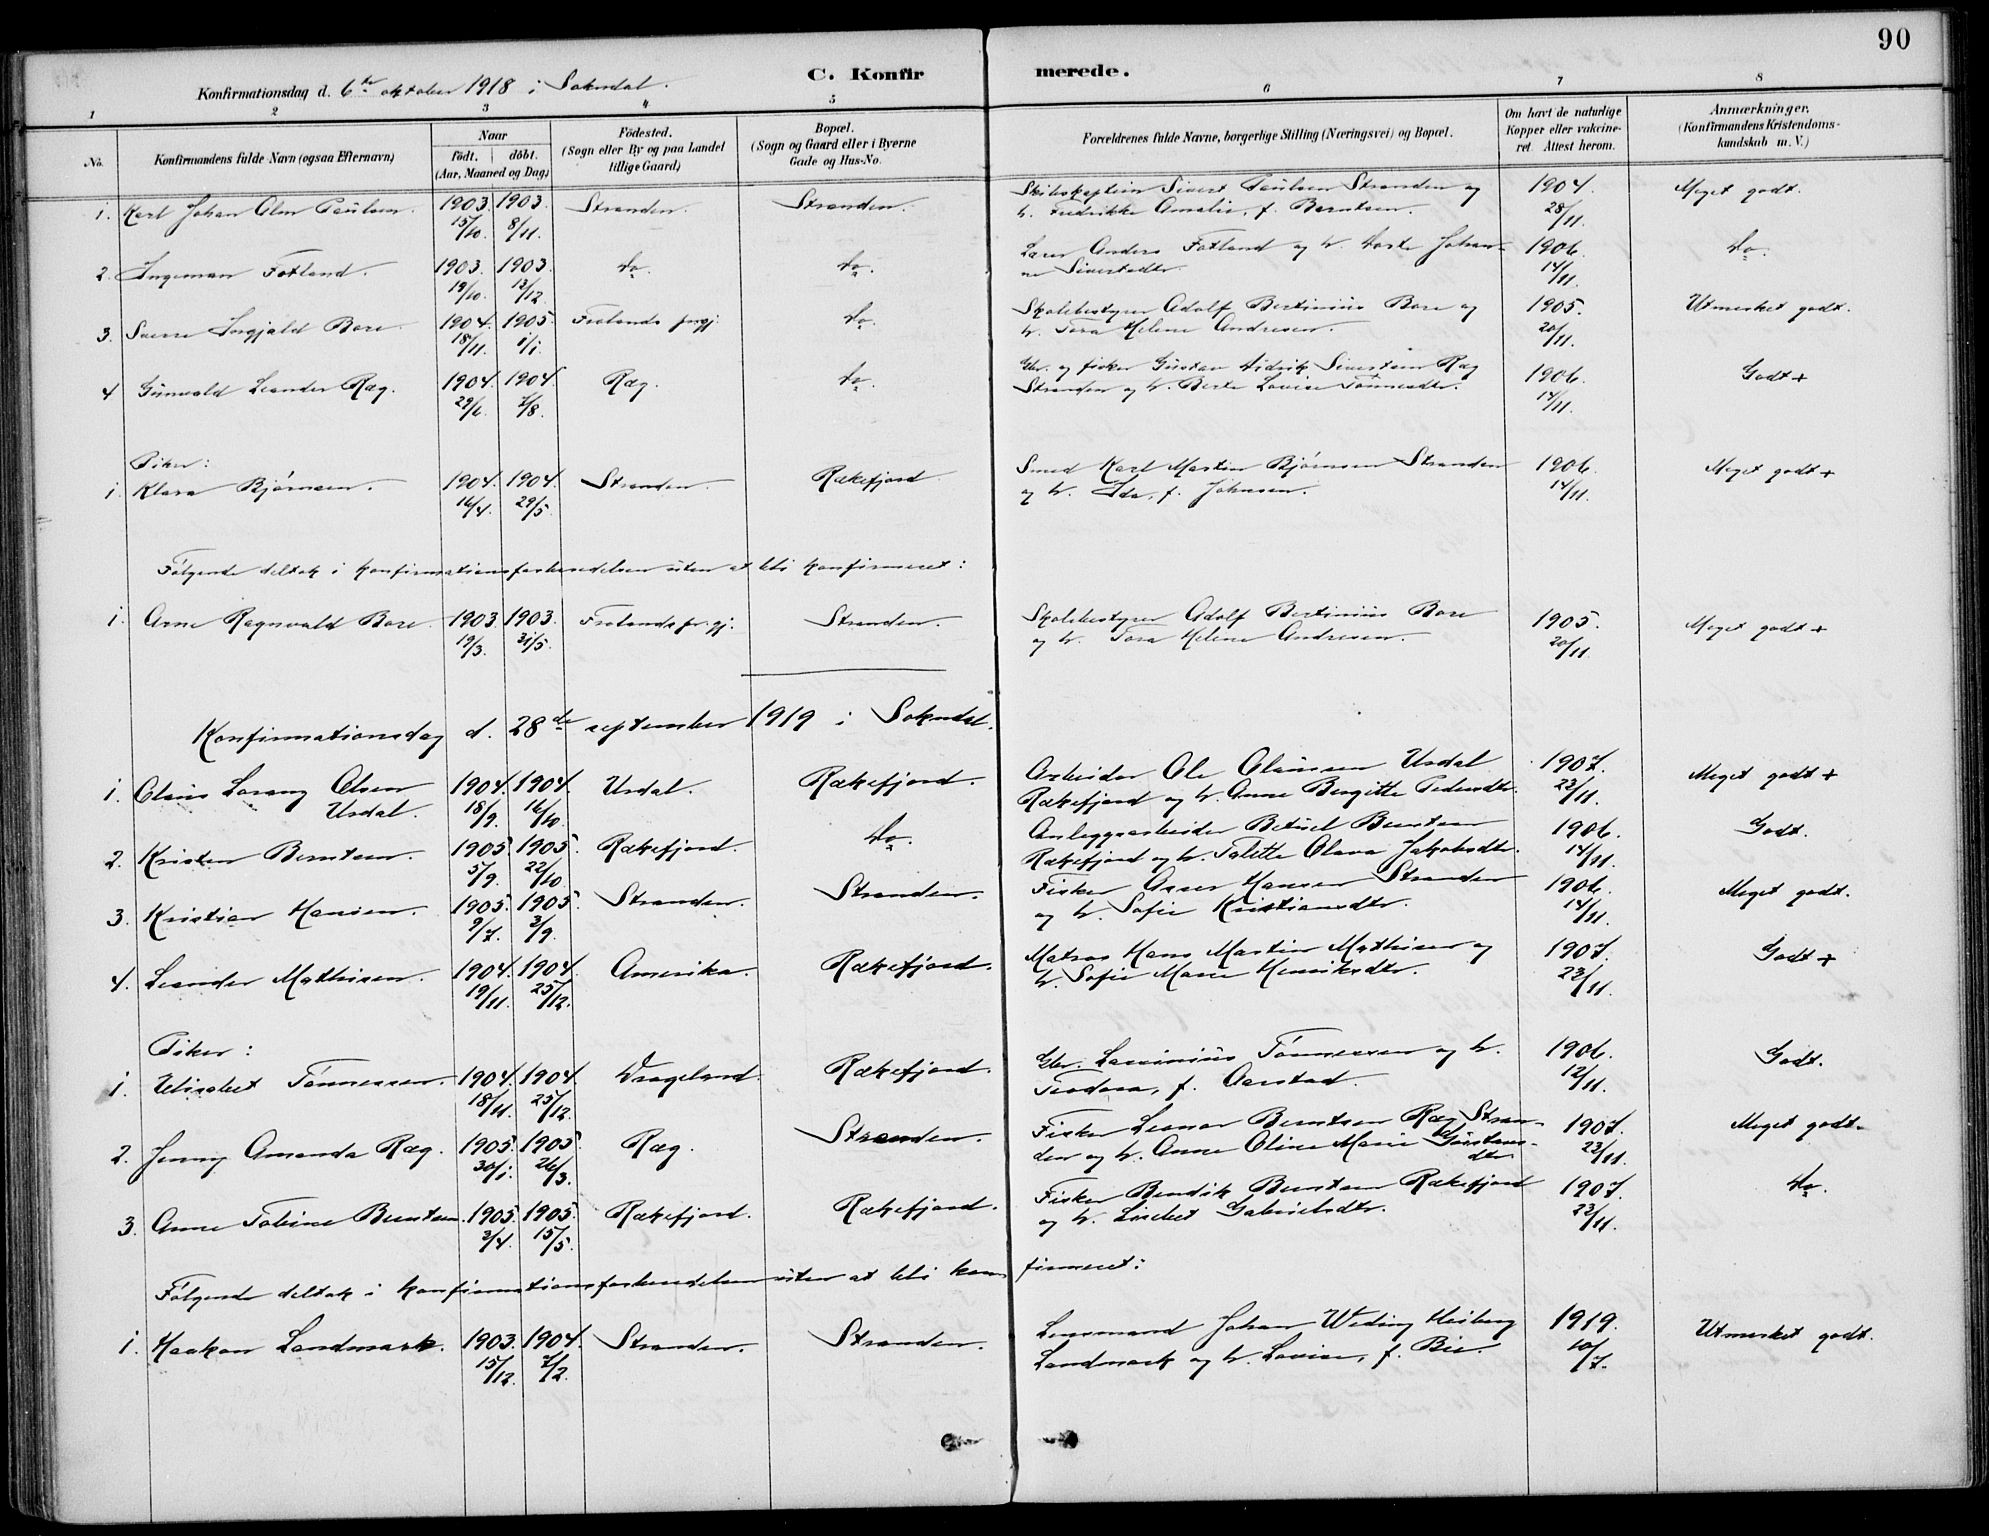 90
C. Konfirmerede.
Konfirmationsdag d. 6te oktober 1918 i Sokndal.
1 2 3 4 5 6 7 8
No. Konfirmandens fulde Navn (ogsaa Efternavn) Naar født. døbt. (Aar, Maaned og Dag) Fødested. (Sogn eller By og paa Landet tillige Gaard) Bopæl. (Sogn og Gaard eller i Byerne Gade og Hus-No. Forældrenes fulde Navne, borgerlige Stilling (Næringsvei) og Bopæl. Om havt de naturlige Kopper eller vakcineret. Attest herom. Anmærkninger. (Konfirmandens Kristendomskundskab m. V.)
1. Karl Johan Paulsen. 1903. 1903. Stranden. Stranden. Skibskaptein Sivert Paulsen Stranden og 1904. Meget godt.
15/10. 8/11. h. Fredrikke Amalie, f. Berntsen. 28/11.
2. Ingeman Fotland. 1903. 1903. do. do. Anders Fotland og h. Johan- 1906. do.
19/10. 13/12. ne Sivertsdtr. 14/11.
3. Sverre Ingjald Bore. 1904. 1905. Frolands prgj. do. Skolebestyrer Adolf Bertinius Bore og 1905. Utmerket godt.
18/11. 1/1. h. Tora Helene Andresen. 20/11.
4 Gunvald Leander Ræg. 1904. 1904. Ræg. do. Gbr. og fisker Gustav Didrik Sivertsen Ræg 1906. Godt +
29/6. 7/8. Stranden og h. Berte Lovise Tønnesdtr. 14/11.
Piker:
1 Klara Bjørnsen. 1904. 1904. Stranden. Rækefjord Smed Karl Martin Bjørnsen Stranden 1906. Meget godt +
16/4. 29/5. og h. Ida, f. Johnsen. 14/11.
Følgende deltok i konfirmationsforberedelsen uten at bli konfirmeret:
1. Arne Ragnvald Bore. 1903. 1903. Frolands prgj. Stranden. Skolebestyrer Adolf Bertinius Bore 1905. Meget godt +
19/3. 31/5. og h. Tora Helene Andresen. 20/11.
Konfirmationsdag d. 28de september 1919 i Sokndal.
1. Olaus Lorang Olsen 1904. 1904. Usdal. Rækefjord. Arbeider Ole Olausen Usdal 1907. Meget godt +
Usdal. 18/9. 16/10. Rækefjord og h. Anne Bergitte Pedersdtr. 23/11.
2. Kristen Berntsen. 1905. 1905. Rækefjord. do. Anlegsarbeider Betuel Berntsen 1906. Godt.
5/9. 22/10 Rækefjord og h. Talette Olava Jakobsdtr. 14/11.
3. Kristian Hansen. 1905. 1905. Stranden. Stranden. Fisker Asser Hansen Stranden 1906. Meget godt.
9/7. 3/9. og h. Sofie Kristiansdtr. 14/11.
4. Leander Mathisen. 1904. 1904. Amerika. Rækefjord. Matros Hans Martin Mathisen og 1907. Godt +
19/11. 25/12. h. Sofie Marie Henriksdtr. 23/11.
Piker:
1. Elisabet Tønnessen. 1904. 1904. Drageland. Rækefjord. Gbr. Lavinius Tønnessen og h. 1906. Godt.
18/11. 25/12. Teodora, f. Aarstad. 12/11.
2. Jenny Amanda Ræg. 1905. 1905. Ræg. Stranden. Fisker Leonor Berntsen Ræg Stran- 1907. Meget godt.
30/1. 26/3. den og h. Anne Oline Marie Gustavs- dtr. 23/11.
3. Anne Tobine Berntsen. 1905. 1905. Rækefjord. Rækefjord. Fisker Bendik Berntsen Rækefjord 1907. do.
2/4. 15/5. og h. Lisebet Gabrielsdtr. 23/11.
Følgende deltok i konfirmationsforberedelsen uten at bli konfirmeret:
1. Haakon Landmark. 1903. 1904. Stranden. Stranden. Lensmand Johan Weding Heiberg 1919. Utmerket godt.
15/12. 7/2. Landmark og h. Lovise, f. Bie. 10/7.